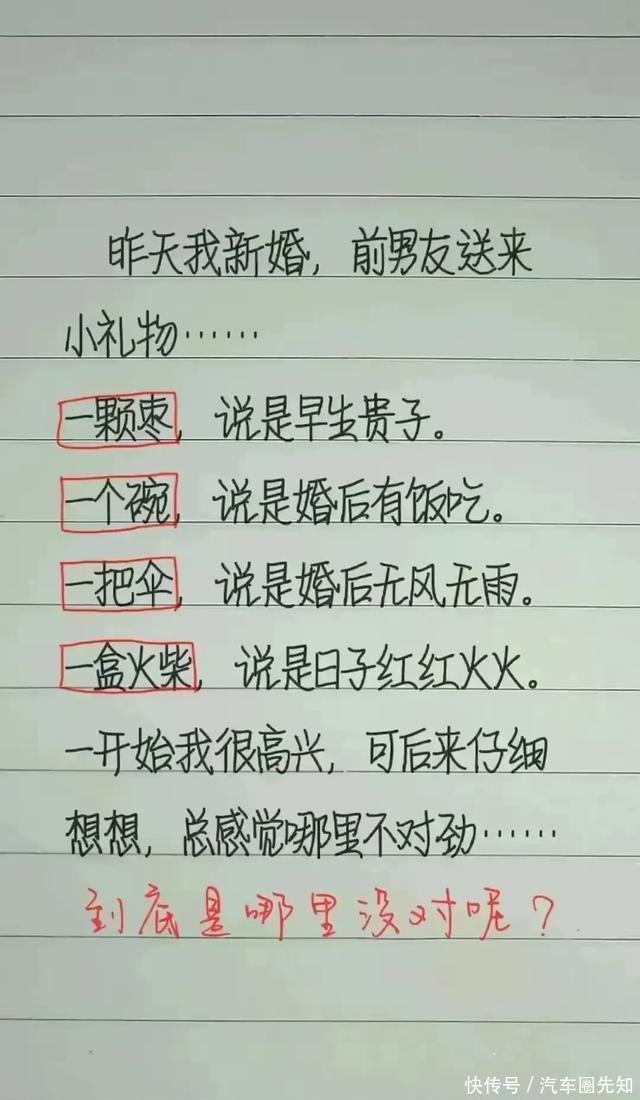 昨天我新婚，前男友送来
小礼物……
一颗枣，说是早生贵子。
一个碗，说是婚后有饭吃。
一把伞，说是婚后无风无雨。
一盒火柴，说是日子红红火火。
一开始我很高兴，可后来仔细
想想，总感觉哪里不对劲……
到底是哪里没对呢？
快传号/汽车圈先知